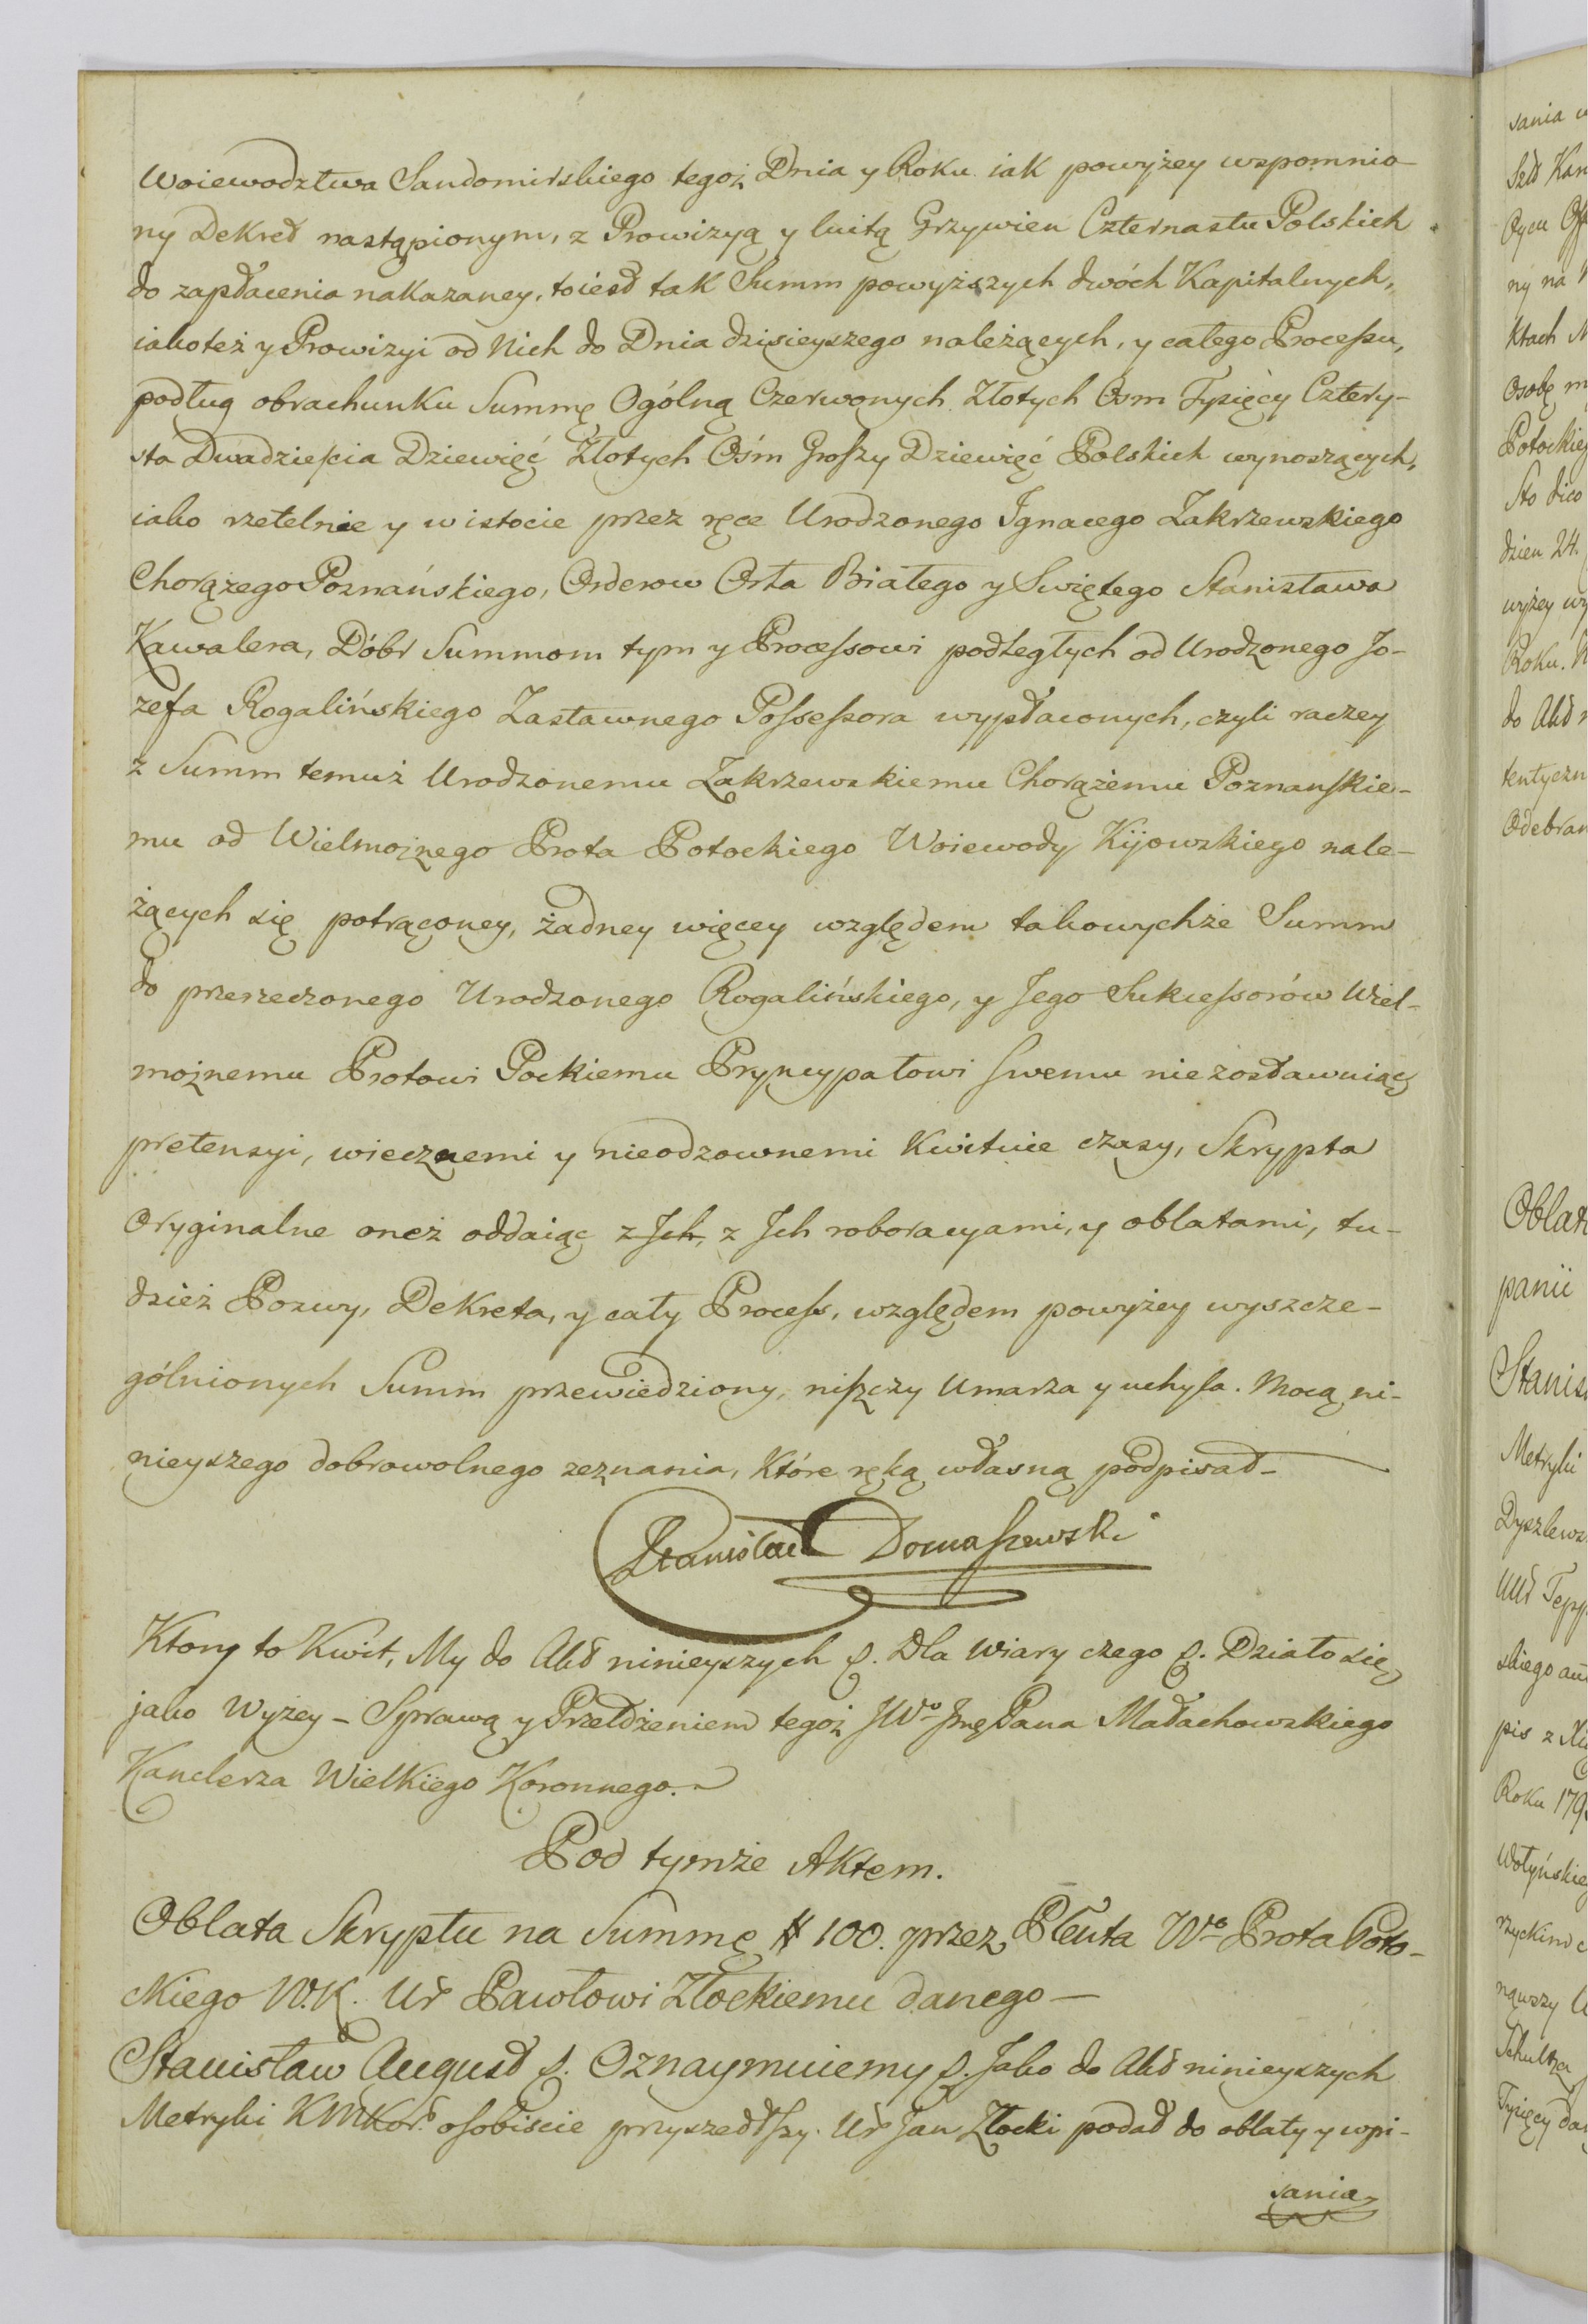 Woiewodztwa Sandomirskiego tegoż Dnia y Roku iak powyżey wspomnio-
ny Dekret nastąpionym, z Prowizyą y luitą Grzywien Czternastu Polskich
do zapłacenia nakazaney, toiest tak Summ powyższych dwóch Kapitalnych,
iakoteż y Prowizyi od Nich do Dnia dzisieyszego należących, y całego Processu,
podług obrachunku Summę Ogólną Czerwonych Złotych Ośm Tysięcy Cztery-
sta Dwadzieścia Dziewięć Złotych Ośm Groszy Dziewięć Polskich wynoszących,
iako rzetelnie y w istocie przez ręce Urodzonego Ignacego Zakrzewskiego
Chorążego Poznańskiego, Orderow Orła Białego y Swiętego Stanisława
Kawalera, Dóbr Summom tym y Processowi podległych od Urodzonego Jo-
zefa Rogalińskiego Zastawnego Possessora wypłaconych, czyli raczey
z Summ temuż Urodzonemu Zakrzewskiemu Chorążemu Poznanskie-
mu od Wielmożnego Prota Potockiego Woiewody Kijowskiego nale-
żących się potrąconey, żadney więcey względem takowychże Summ
do przerzeczonego Urodzonego Rogalińskiego, y Jego Sukcessorów Wiel-
możnemu Protowi Pockiemu Pryncypałowi swemu niezostawuiąc
pretensyi, wiecznemi y nieodzownemi Kwituie czasy, Skrypta
Oryginalne oneż oddaiąc z Jch, z Jch roboracyami, y oblatami, tu-
dzież Pozwy, Dekreta, y cały Process, względem powyżey wyszcze-
gólnionych Summ przewiedziony, niszczy Umarza y uchyla. Mocą ni-
nieyszego dobrowolnego zeznania, Które ręką własną podpisał –
Stanisław Domaszewski
Ktory to Kwit, My do Akt ninieyszych p. Dla Wiary czego p. Działo się
jako Wyżey – Sprawą y Przełdżeniem tegoż JWo Jmę Pana Małachowskiego
Kanclerza Wielkiego Koronnego.
Pod tymże Aktem.
Oblata Skryptu na Summę # 100. przez Plenta Wo Prota Poto-
ckiego W.K. Ur Pawłowi Złockiemu danego –
Stanisław August p. Oznaymuiemy p. Jako do Akt ninieyszych
Metryki KMKor. osobiscie przyszedłszy. Ur Jan Złocki podał do oblaty y wpi-
sania
sania
Kan
ny na
ktach
Osobę
Potockieg
Sto dico
dzien 24.
wyżey
Roku.
do Akt
tentyczn
Odebran
Oblat
panii
Stanis
Metryki
Dyszlews
skiego
pis z
Roku 179
Wołyńskieg
nąwszy
Schultza
Tysięcy